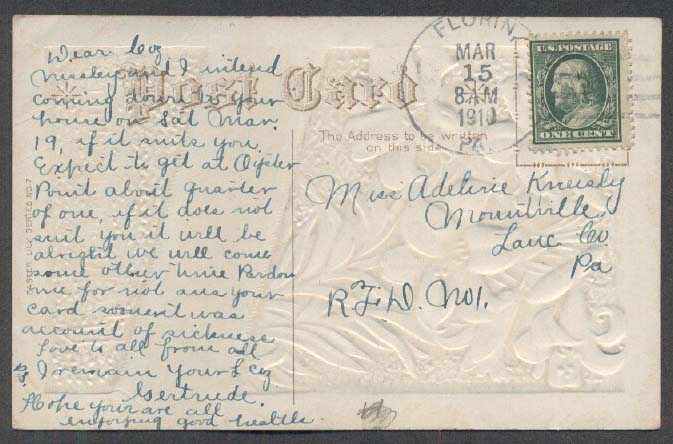 Dear Coz
Niseley and I intend
coming down to your
house on Sat Mar.
19, if it suits you.
Expect to get at Oyster
Point about quarter
of one, if it does not
suit you it will be
alright we will come
some other time Pardon
me for not ans your
card sooner it was
account of sickness
Love to all from all
I remain Your L Coz
Gertrude.
P.S.
Hope your are all
enjoying good health.
EASTER LILY SERIES NO. 7
Post Card
The Address to be written
on this side
FLORIN
MAR
15
8 AM
1910
PA.
U.S. POSTAGE
ONE CENT
Miss Adeline Kneisly
Mountville
Lanc Co.
Pa
R.F.D. No 1.